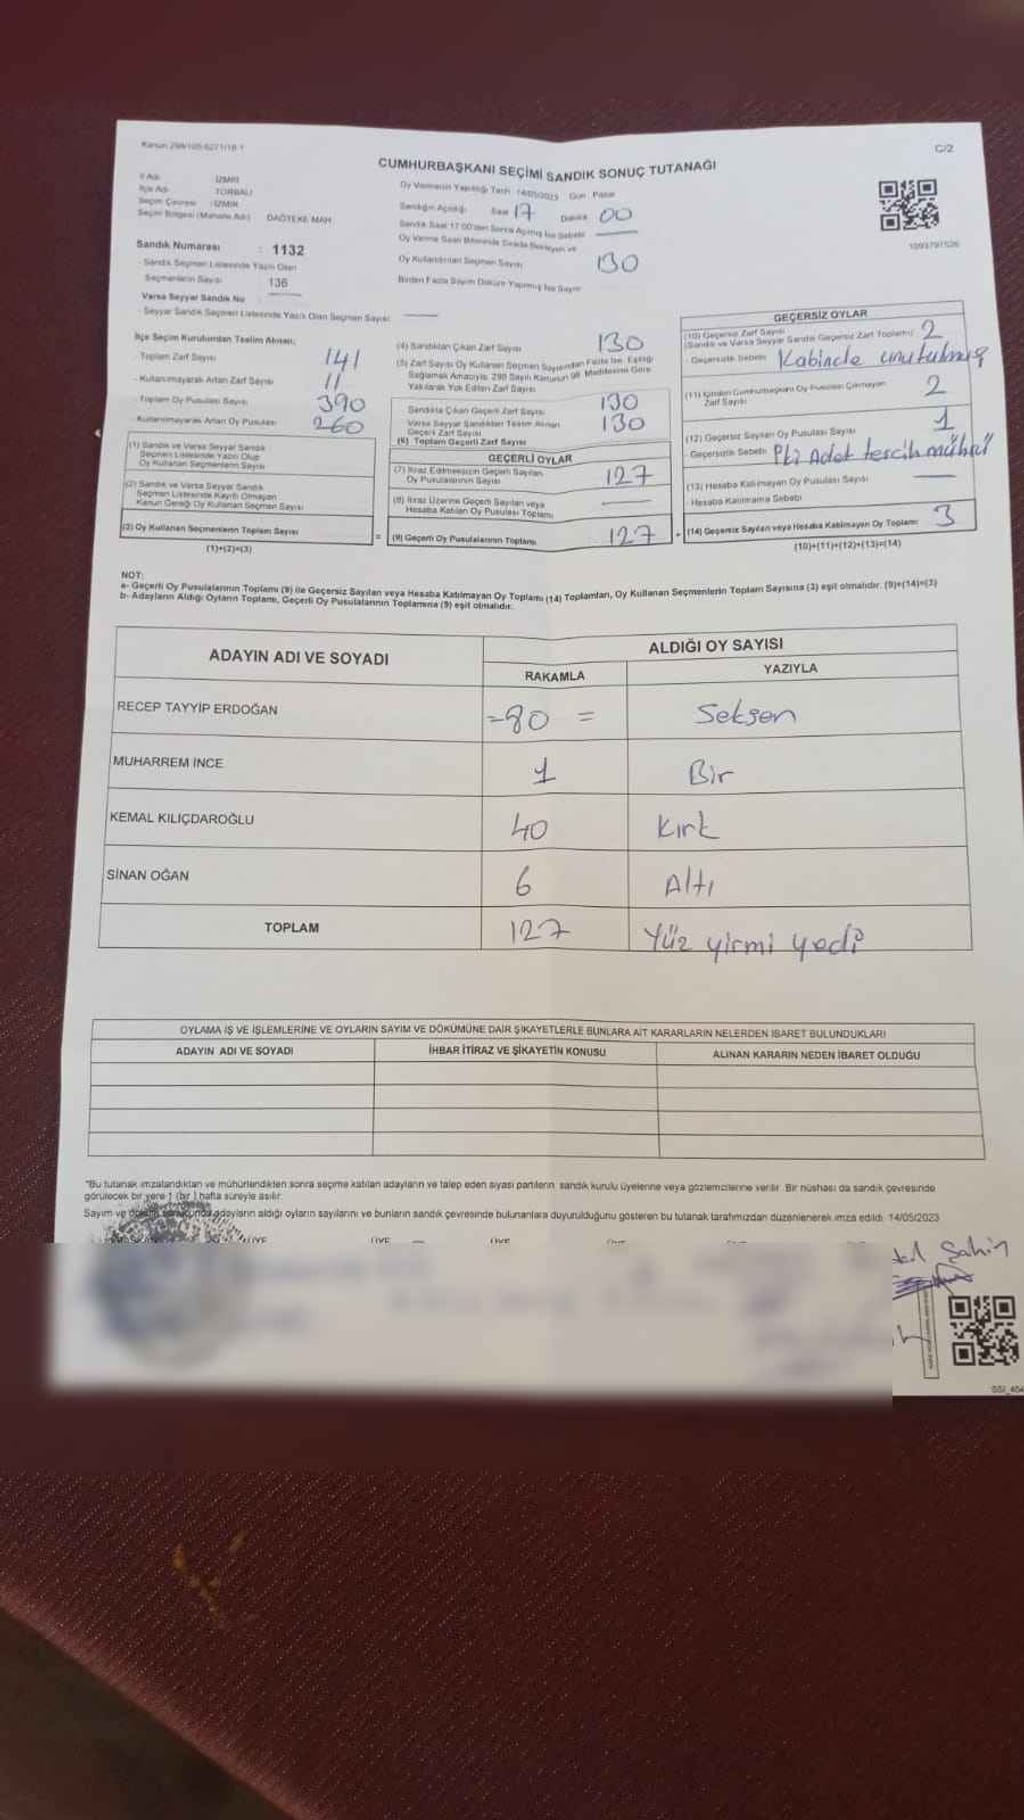 C/2
CUMHURBAŞKANI SEÇİMİ SANDIK SONUÇ TUTANAĞI
İl Adı İZMİR
İlçe Adı TORBALI
Seçim Çevresi İZMİR
Seçim Bölgesi (Mahalle Adı) DAĞTEKE MAH
Sandık Numarası : 1132
Sandık Seçmen Listesinde Yazılı Olan
Seçmenlerin Sayısı 136
Varsa Seyyar Sandık No
Seyyar Sandık Seçmen Listesinde Yazılı Olan Seçmen Sayısı:
Oy Vermenin Yapıldığı Tarih 14/05/2023 Gün Pazar
Sandığın Açıldığı Saat 17 Dakika 00
Oy Kullandırılan Seçmen Sayısı 130
Birden Fazla Sayım Döküm Yapılmış İse Sayısı
İlçe Seçim Kurulundan Teslim Alınan;
Toplam Zarf Sayısı 141
- Kullanılmayarak Artan Zarf Sayısı 11
Toplam Oy Pusulası Sayısı 390
- Kullanılmayarak Artan Oy Pusulası 260
(1) Sandık ve Varsa Seyyar Sandık
Seçmen Listesinde Yazılı Olup
Oy Kullanan Seçmenlerin Sayısı
(2) Sandık ve Varsa Seyyar Sandık
Seçmen Listesinde Kayıtlı Olmayan
Kanun Gereği Oy Kullanan Seçmen Sayısı
(3) Oy Kullanan Seçmenlerin Toplam Sayısı =
(1)+(2)=(3)
(4) Sandıktan Çıkan Zarf Sayısı 130
(5) Zarf Sayısı Oy Kullanan Seçmen Sayısından Fazla İse, Eşitliği
Sağlamak Amacıyla, 298 Sayılı Kanunun 98. Maddesine Göre
Yakılarak Yok Edilen Zarf Sayısı
Sandıkta Çıkan Geçerli Zarf Sayısı 130
Varsa Seyyar Sandıktan Teslim Alınan
Geçerli Zarf Sayısı 130
(6) Toplam Geçerli Zarf Sayısı
GEÇERLİ OYLAR
(7) İtiraz Edilmeksizin Geçerli Sayılan
Oy Pusulalarının Sayısı 127
(8) İtiraz Üzerine Geçerli Sayılan veya
Hesaba Katılan Oy Pusulası Toplamı
(9) Geçerli Oy Pusulalarının Toplamı 127 +
GEÇERSİZ OYLAR
(10) Geçersiz Zarf Sayısı
(Sandık ve Varsa Seyyar Sandık Geçersiz Zarf Toplamı) 2
- Geçersizlik Sebebi Kabinde unutulmuş
Oy Pusulası Çıkmayan
Zarf Sayısı 2
(12) Geçersiz Sayılan Oy Pusulası Sayısı 1
- Geçersizlik Sebebi adet tercih mühürü
(13) Hesaba Katılmayan Oy Pusulası Sayısı
Hesaba Katılmama Sebebi
(14) Geçersiz Sayılan veya Hesaba Katılmayan Oy Toplamı 3
(10)+(11)+(12)+(13)=(14)
NOT:
a- Geçerli Oy Pusulalarının Toplamı (9) ile Geçersiz Sayılan veya Hesaba Katılmayan Oy Toplamı (14) Toplamları, Oy Kullanan Seçmenlerin Toplam Sayısına (3) eşit olmalıdır. (9)+(14)=(3)
b- Adayların Aldığı Oyların Toplamı, Geçerli Oy Pusulalarının Toplamına (9) eşit olmalıdır.
ADAYIN ADI VE SOYADI ALDIĞI OY SAYISI
RAKAMLA YAZIYLA
RECEP TAYYİP ERDOĞAN =80= Seksen
MUHARREM İNCE 1 Bir
KEMAL KILIÇDAROĞLU 40 Kırk
SİNAN OĞAN 6 Altı
TOPLAM 127 Yüz yirmi yedi
OYLAMA İŞ VE İŞLEMLERİNE VE OYLARIN SAYIM VE DÖKÜMÜNE DAİR ŞİKAYETLERLE BUNLARA AİT KARARLARIN NELERDEN İBARET BULUNDUKLARI
ADAYIN ADI VE SOYADI İHBAR İTİRAZ VE ŞİKAYETİN KONUSU ALINAN KARARIN NEDEN İBARET OLDUĞU
"Bu tutanak imzalandıktan ve mühürlendikten sonra seçime katılan adayların ve talep eden siyasi partilerin sandık kurulu üyelerine veya gözlemcilerine verilir. Bir nüshası da sandık çevresinde
görülecek bir yere 1 (bir) hafta süreyle asılır.
Sayım ve döküm adayların aldığı oyların sayılarını ve bunların sandık çevresinde bulunanlara duyurulduğunu gösteren bu tutanak tarafımızdan düzenlenerek imza edildi. 14/05/2023
ÜYE ÜYE ÜYE
Şahin